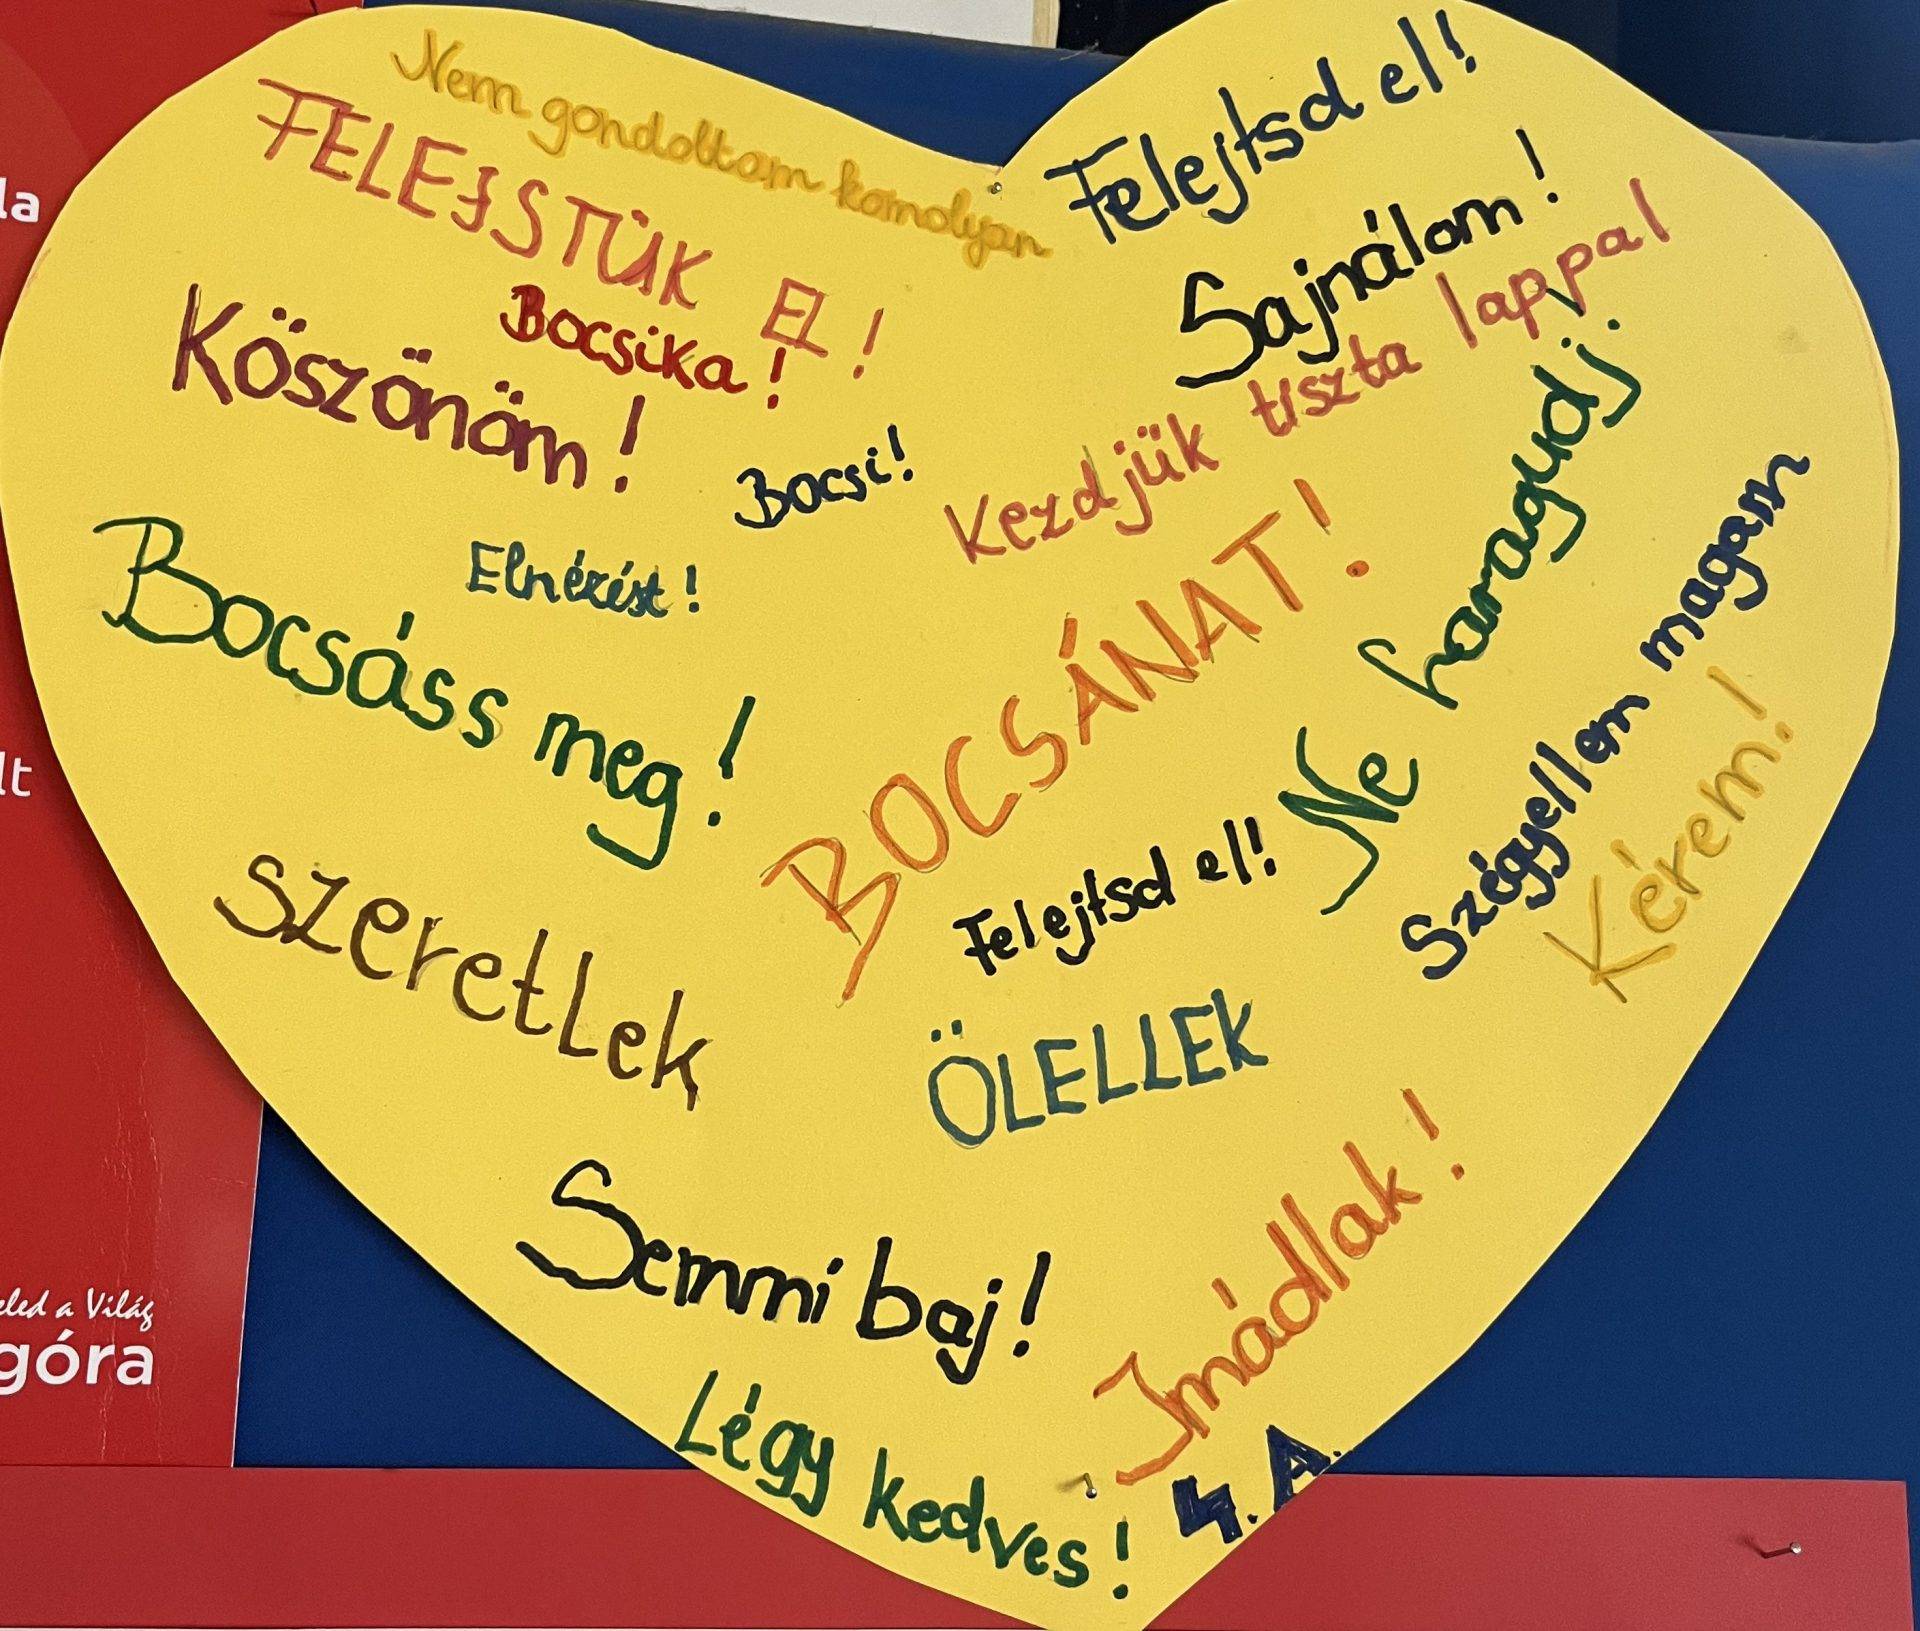 Nem gondoltam komolyan
FELEJSTÜK EL!
Felejtsd el!
Sajnálom!
Bocsika!
Köszönöm!
Kezdjük tiszta lappal
Bocsi!
Elnézést!
Bocsáss meg!
BOCSÁNAT!
Ne haragudj
Szégyellem magam
Kérem!
Felejtsd el!
szeretlek
ÖLELLEK
Semmi baj!
Imádlak!
Légy kedves!
4. A.
la
lt
eled a Világ
góra